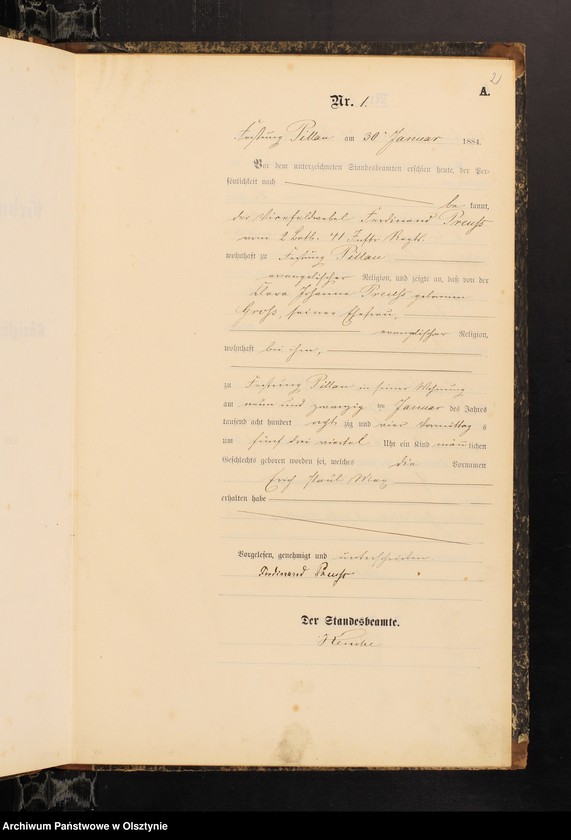 2
A.
Nr. 1.
Festung Pillau am 30ᵗ Januar 1884.
Vor dem unterzeichneten Standesbeamten erschien heute, der Per-
sönlichkeit nach
be kannt,
der Vicefeldwebel Ferdinand Preuß
vom 2 Batl. 41 Inftr Regts.
wohnhaft zu Festung Pillau
evangelischer Religion, und zeigte an, daß von der
Johanne Preuß geborenen
Groß, seiner Ehefrau,
evanglischer Religion,
wohnhaft bei ihm,
zu Festung Pillau in seiner Wohnung
am neun und zwanzig ten Januar des Jahres
tausend acht hundert acht zig und vier Vormittag s
um fünf drei viertel Uhr ein Kind männlichen
Geschlechts geboren worden sei, welches die Vornamen
Erich Paul Max
erhalten habe
Vorgelesen, genehmigt und unterschrieben
Ferdinand Preuß
Der Standesbeamte.
Archiwum Państwowe w Olsztynie